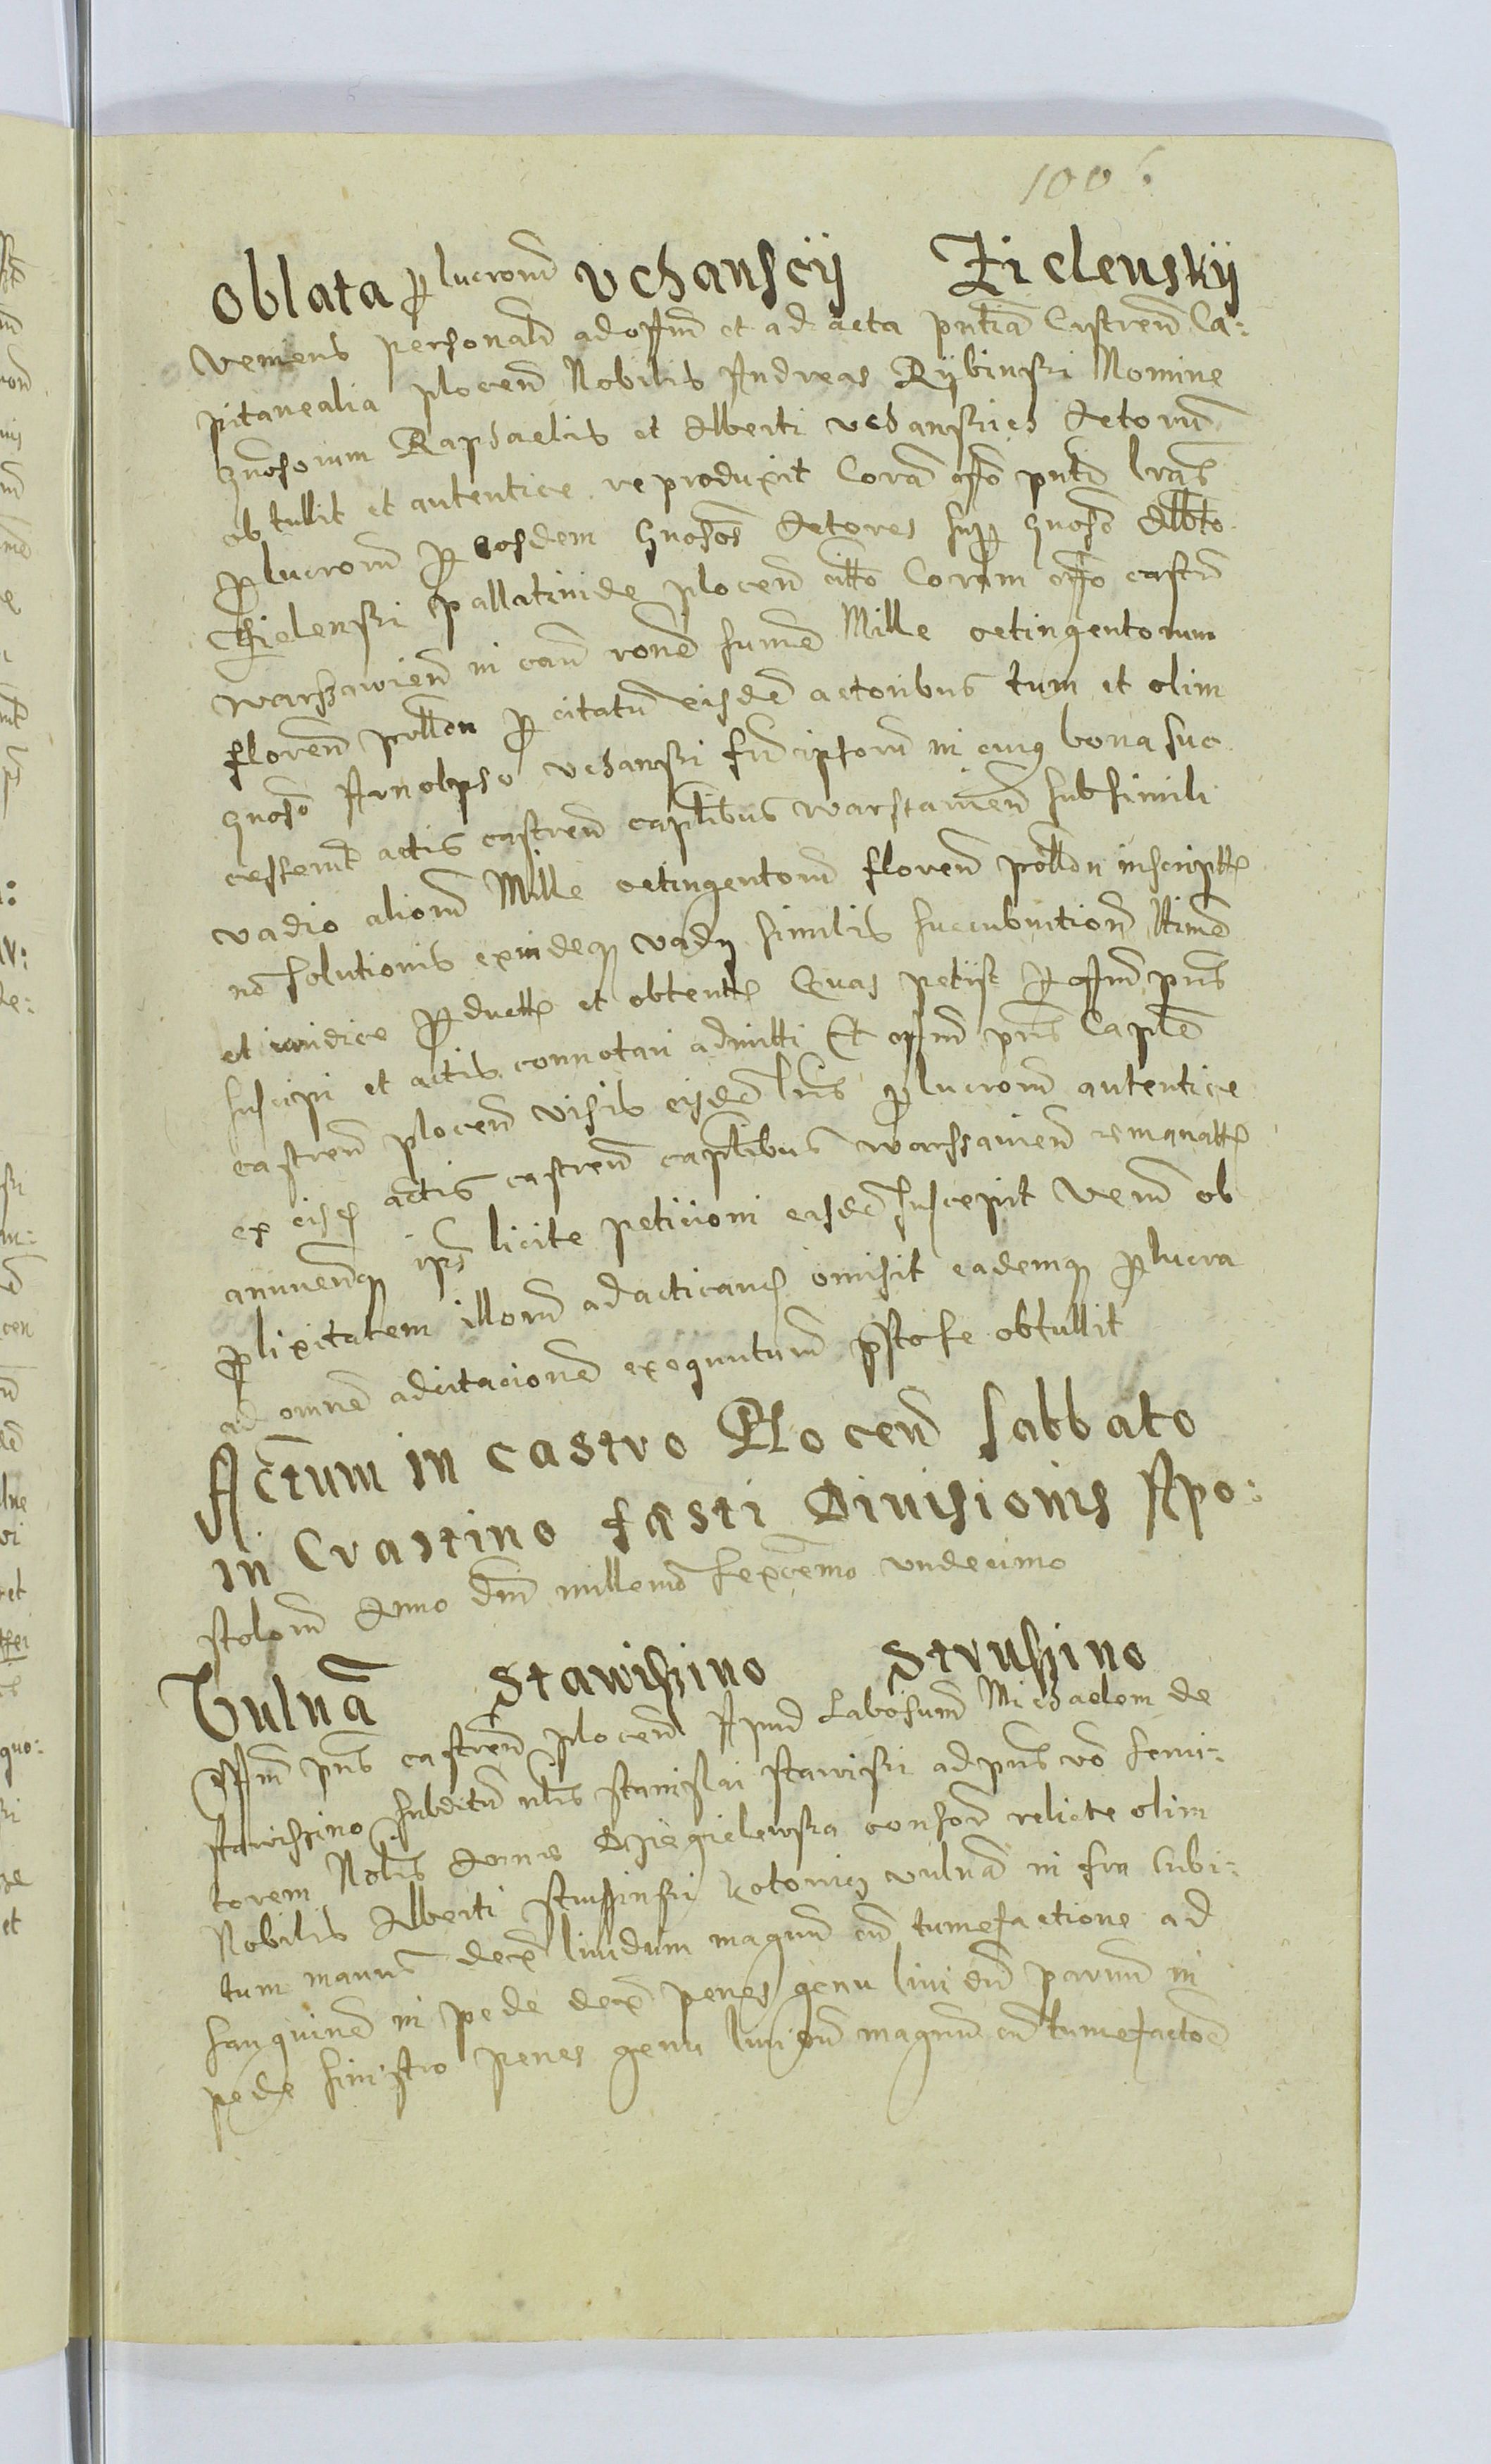 1006
Oblata p lucrorũ Uchanscÿ Zielenskÿ
Veniens personalr ad offm et ad acta pntia Castren Ca:
pitanealia plocen Nobilis Andreas Rÿbinski Nomine
gnosorum Raphaelis et Alberti Uchanskich Actorũ
obtullit et autentice reproduxit Corã offo pnti lras
p lucrorũ p eosdem gnosos Actores sup gnoso Albto
Zielenski pallatinide plocen citto Coram offo castrẽ
Warszawien in cau rone summe Mille octingentorum
floren pollon p citatũ eisdẽ actoribus tum et olim
gnoso Arnolpho Uchanski frĩ ipsorũ in cuius bona suc
cesserũt actis castren captlibus warszavien sub simili
vadio aliorũ Mille octingentorũ floren pollon inscriptt
nõ solutionis exindeq vady similis succubuitionẽ
et iuridice p ductt et obtentt Quas petiit p offm pns
suscipi et actis connotari admitti Et offm pns Captle
castren plocen visis eisdẽ lris p lucrorũ autentice
ex eisd actis castren captlibus warssavien emanatt
annuendq ips licite peticioni easdẽ suscepit Verũ ob
plixitatem illorũ adacticand omisit eademq p lucra
ad omnẽ adcitacionẽ exequuturũ obtullit
Actum in castro Plocen sabbato
in Crastino festi Divisionis Apo:
stolorũ Anno Dni millemo sexcemo undecimo
Vulna Stawiszino Struszino
Offm pns castren plocen Apud Labosum Michaelem de
stawiszino subditũ nlis stanislai stawiski ad pns võ
torem Nolis Anne consor relicte olim
Nobilis Alberti struszinski vulna in fra Cubi:
tum manus dexẽ liuidum magnũ cũ tumefactione ad
sanguinẽ in pede dexõ penes genu liuidũ paruũ in
pede sinistro penes genu liuidũ magnũ cũ tumefactõe